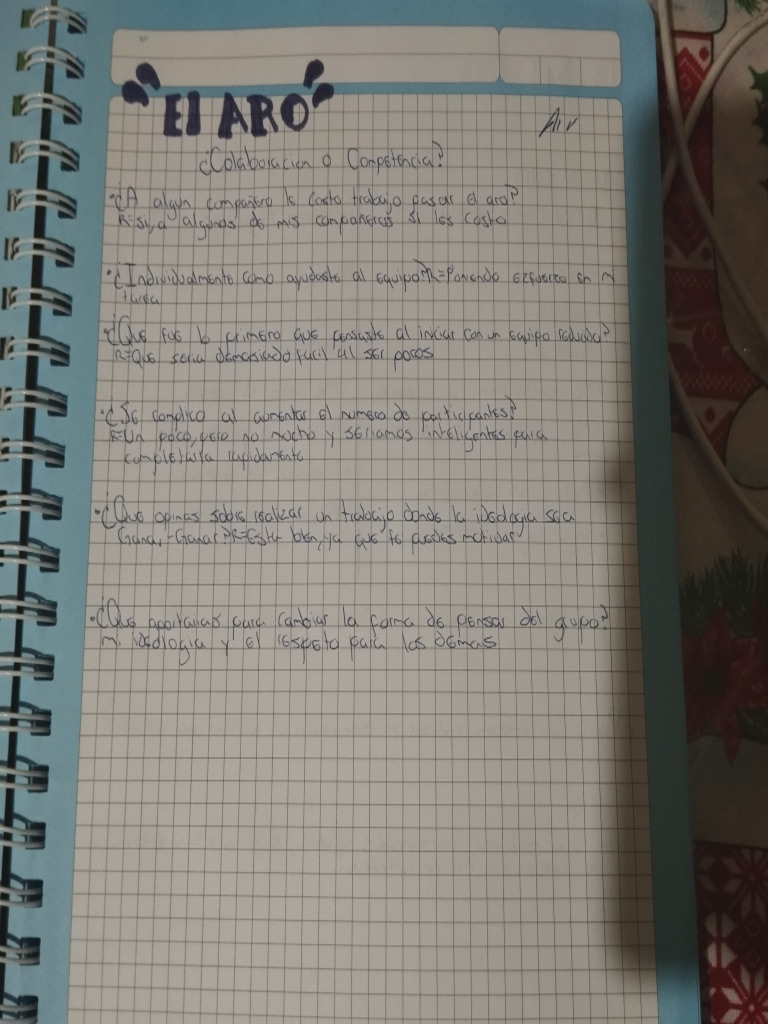 "El ARO"
¿Colaboracion o Competencia?
·¿A algun compañero le costo trabajo pasar el aro?
R=Si, a algunos de mis compañeros si les costo
·¿Individualmente como ayudaste al equipo? R=Poniendo esfuerzo en mi
tarea
·¿Que fue lo primero que pensaste al iniciar con un equipo reducido?
R=Que seria demasiado facil al ser pocos
·¿Se complico al aumentar el numero de participantes?
R=Un poco, pero no mucho y seriamos inteligentes para
completarla rapidamente
·¿Que opinas sobre realizar un trabajo donde la ideologia sea
Ganar-Ganar? R=Esta bien, ya que te puedes motivar
·¿Que aportarias para cambiar la forma de pensar del grupo?
mi ideologia y el respeto para los demas